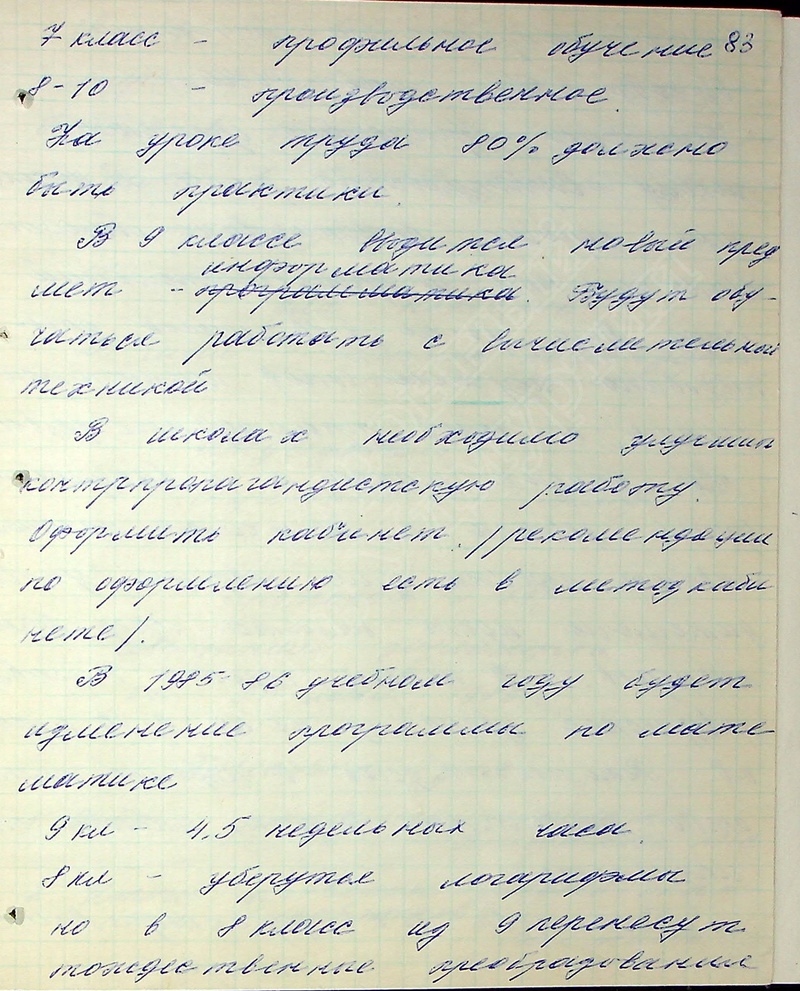 7 класс - профильное обучение 83
8-10 - производственное.
На уроке труда 80% должно
быть практики.
В 9 классе вводится новый пред
информатика
мет - программатика. Будут обу-
чаться работать с вычислительной
техникой
В школах необходимо улучшить
контрпропагандистскую работу.
Оформить кабинет. /рекомендации
по оформлению есть в методкаби
нете/.
В 1985-86 учебном году будет
изменение программы по мате
матике
9 кл - 4,5 недельных часа.
8 кл - уберутся логарифмы
но в 8 класс из 9 перенесут
тождественные преобразования